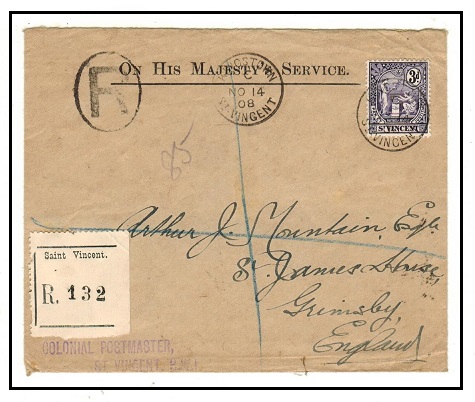 R
ON HIS MAJESTY SERVICE.
KINGSTOWN
C
NO 14
08
ST. VINCENT
3d
ST VINCENT
ST. VINCENT
85
Arthur J. Mountain, Esq.
St James House
Grimsby,
England
Saint Vincent.
R. 132
COLONIAL POSTMASTER,
ST VINCENT B.W.I.